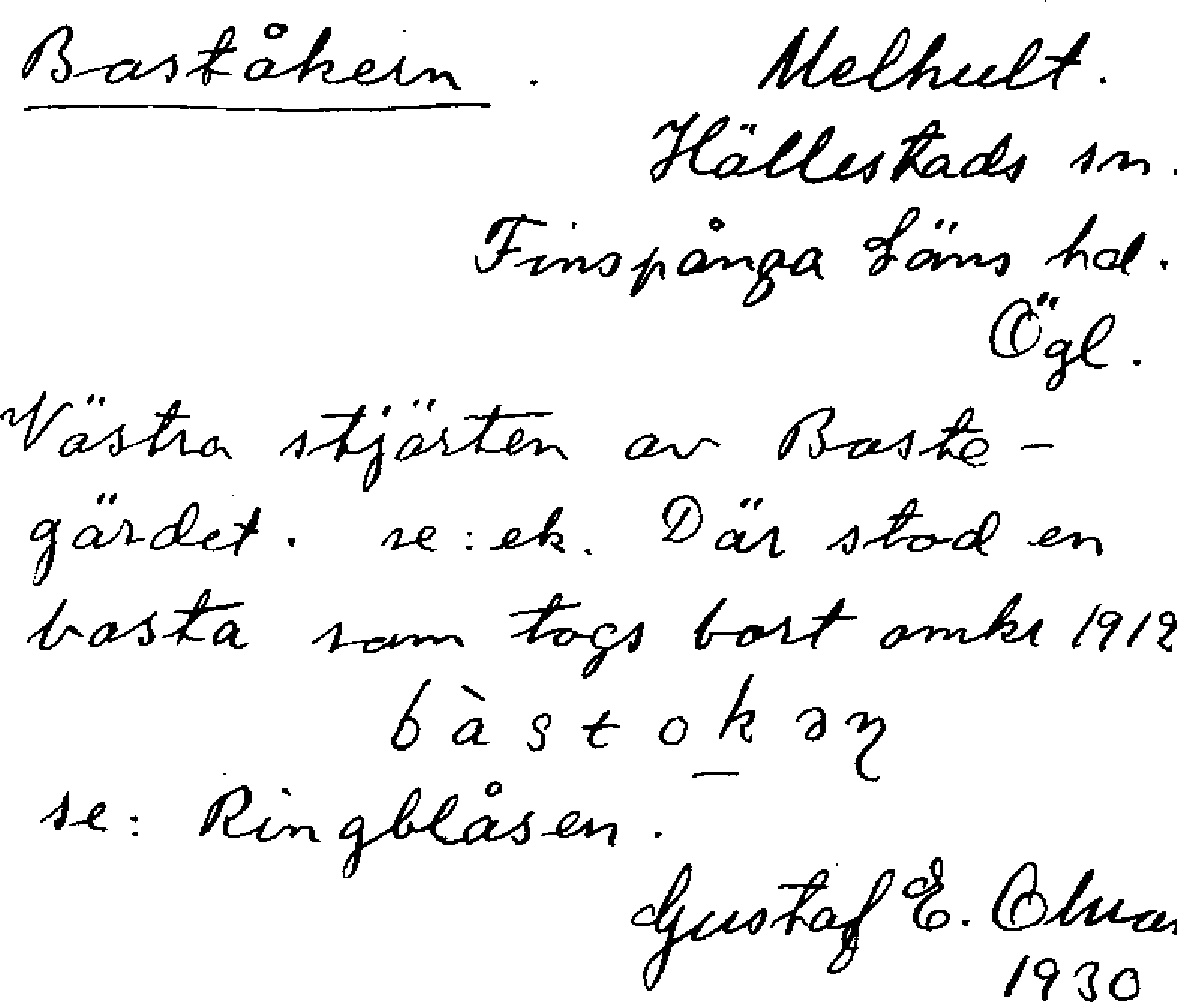 Baståkern. Melhult.
Hällestads sn.
Finspånga Läns hd.
Ögl.
Västra stjärten av Baste-
gärdet. se: ek. Där stod en
basta som togs bort omkr 1912
se: Ringblåsen.
Gustaf E.
1930